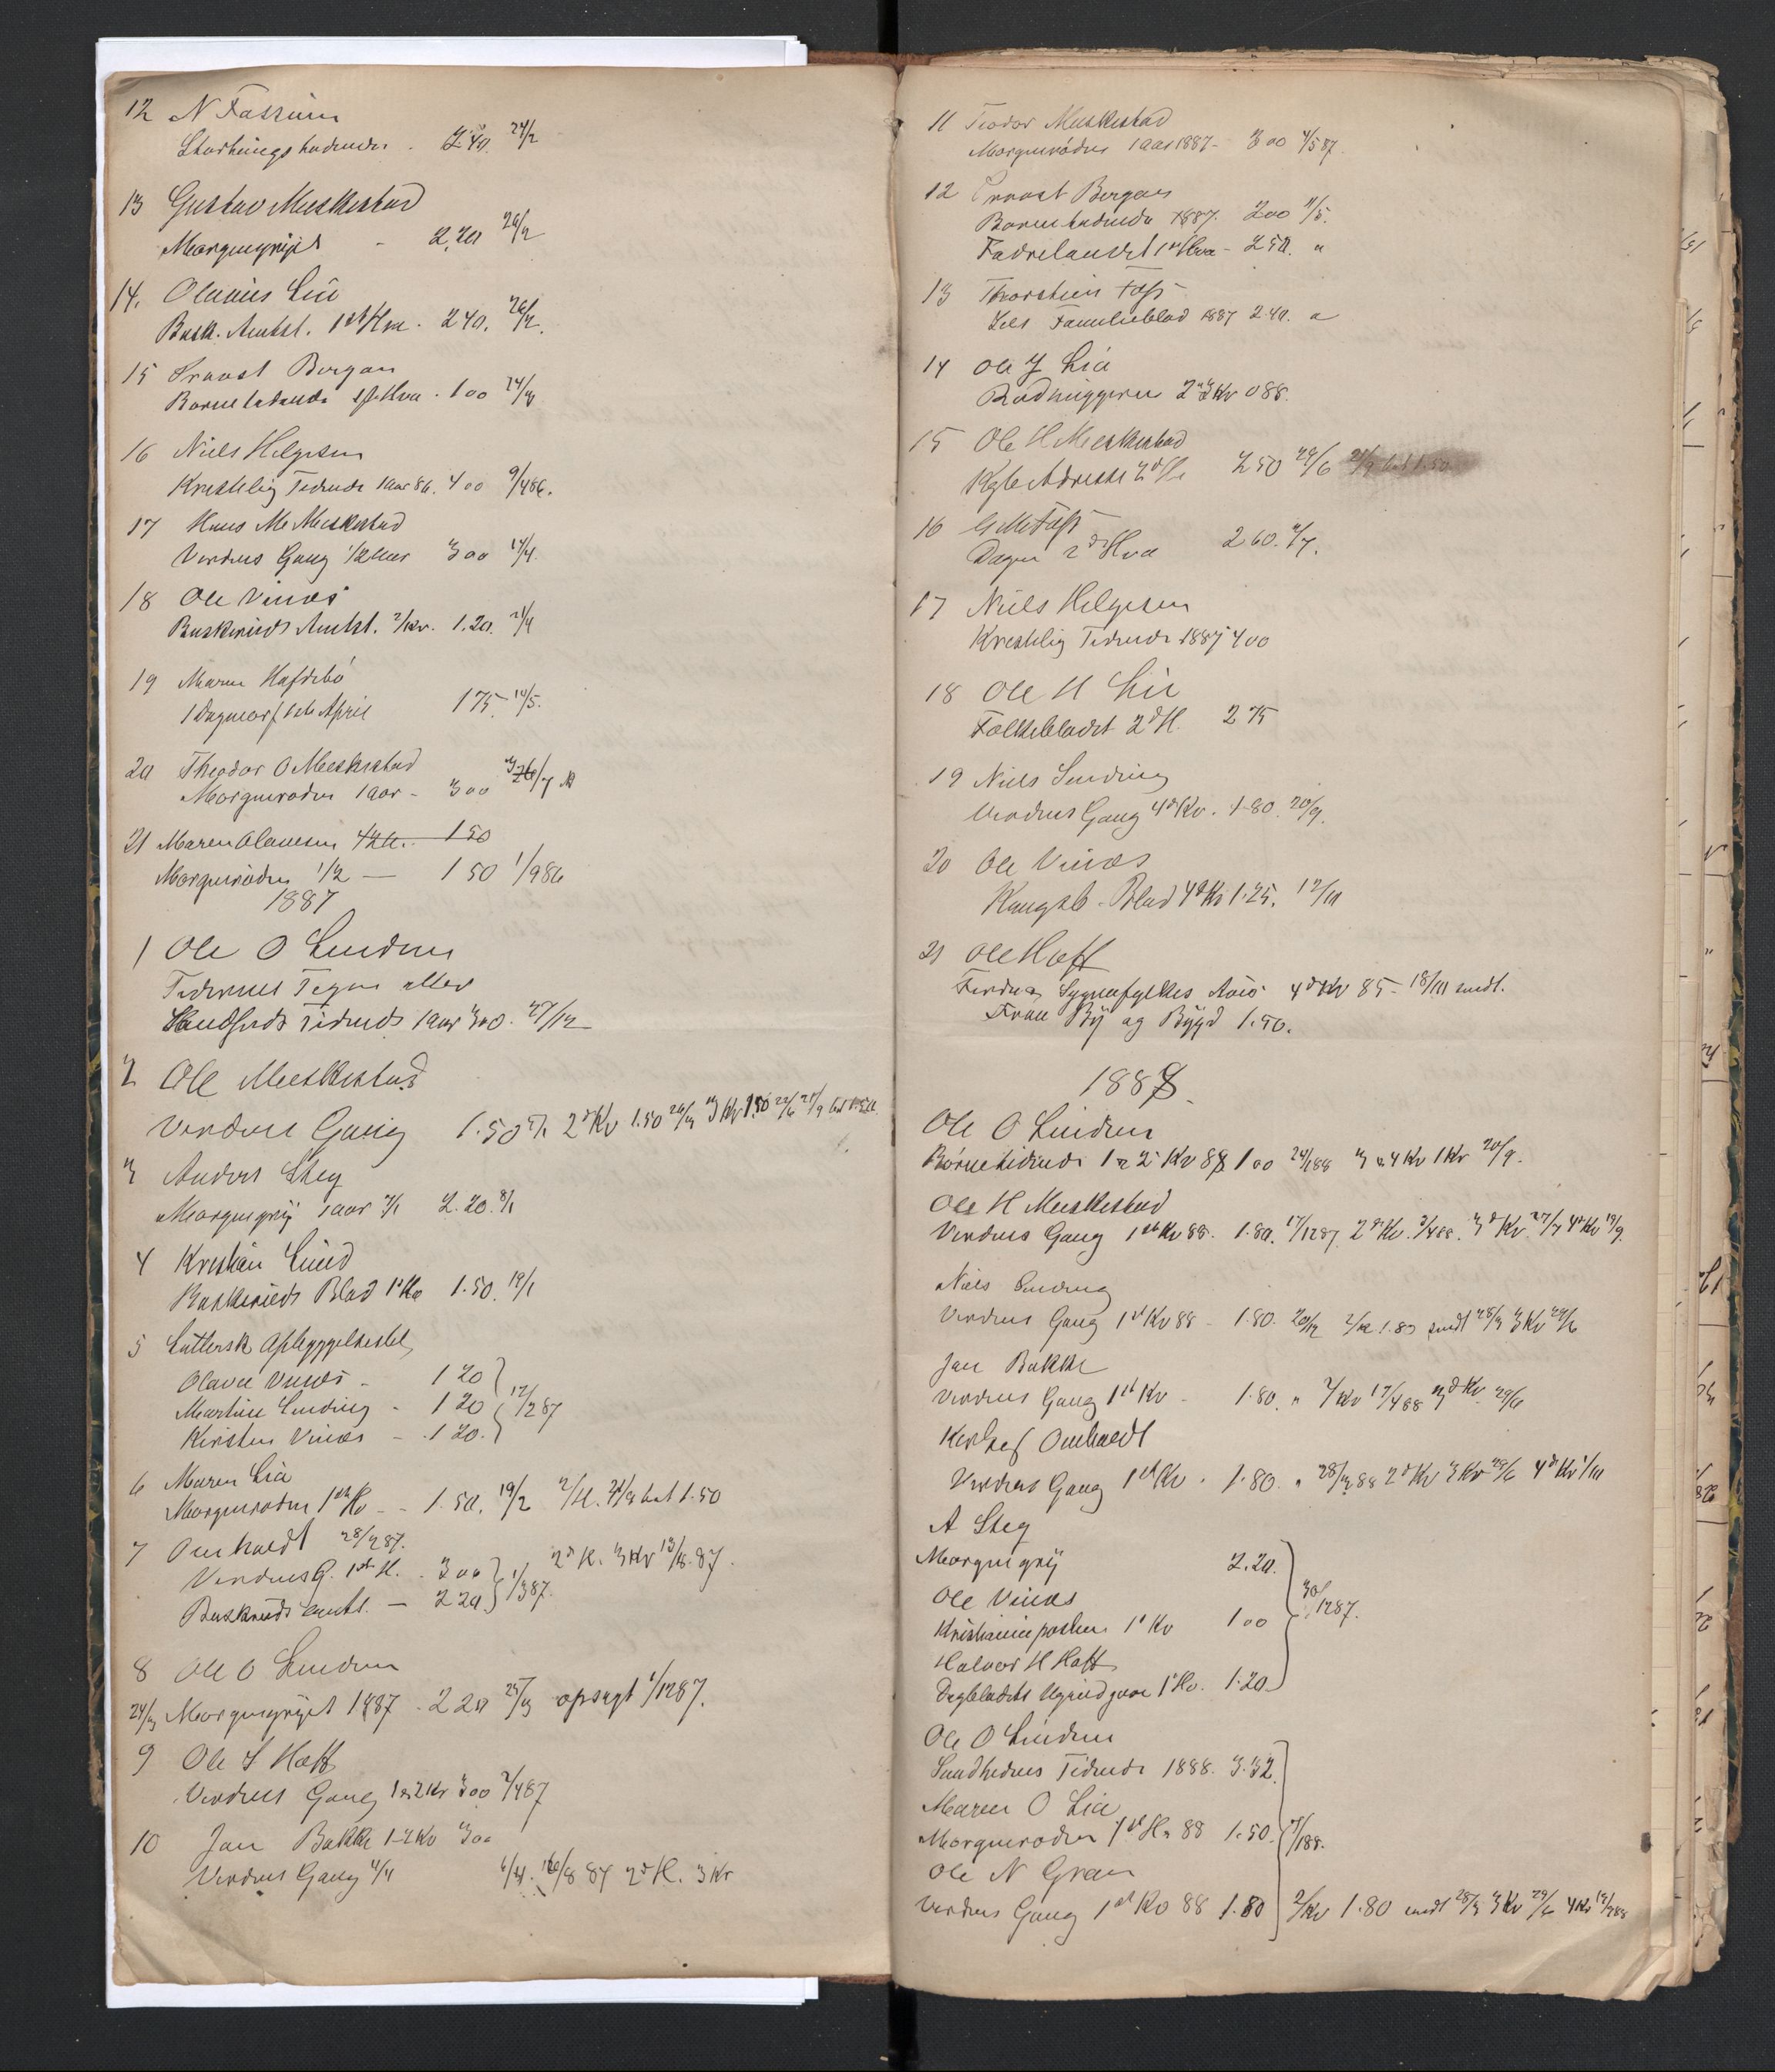 12 N Fossum
Storthingstidende . 2.40. 24/2
13 Gustav Meskestad
Morgengryet - 2.20 26/2
14. Olaves Lië
Busk. Amtst. 1ste Hva . 240. 26/2.
15 Provst Bergan
Børnetidende 1ste Hva . 100 24/3
16 Niels Helgesen
Kristelig Tidende 1aar 86. 400 9/486.
17 Hans M Meskestad
Verdens Gang 1/2 Aar 300 14/4.
18 Ole Vinæs
Buskeruds Amtst. 2/Kv. 1.20. 21/4
19 Maren Hafsbö
1 Dagmar f 1ste April 175. 14/5.
20 Theodor O Meskestad
Morgenrøden 1 aar - 300 26/7
21 Maren Olausen 150
Morgenrøden 1/2 — 150 1/986
1887
1 Ole O Linden
Tidernes Tegn eller
Sundheds Tidende 1 aar 300. 27/12
2 Ole Meskestad
Verdens Gang 1.50 2d Kv 1.50 26/3 3 Kv 1.50 22/6 21/9 bet 1.50.
3 Anders Steg
Morgengry 1 aar 2.20. 8/1
4 Kristian Lind
Buskeruds Blad 1ste Kv 1.50. 19/1
5 Luthersk
Olava Vinæs - 120
Martine Sinding - 120 12/287
Kirsten Vinæs - . 120.
6 Maren Lia
Morgenrøden 1ste Hv - - 1.50. 19/2 2/H. 21/9 bet 1.50
7 Omholdt 28/287.
Verdens G. 1ste H. . 300 2d K. 3 Kv 13/8.87.
Buskeruds Amtst. — 220. 1/387.
8 Ole O Linden
24/3 Morgengryet 1887 . 220 25/3 opsagt 1/1287.
9 Ole S Hoff
Verdens Gang 1 & 2 Kv 300 2/487
10 Jan Bakke 1-2 Kv 300
Verdens Gang 4/4 16/8 87 2d H. 3 Kv
11 Teodor Meskestad
Morgenrøden 1 aar 1887 - 300 4/587.
12 Provst Bergan
Børnetidende 1887. 200 11/5.
Fædrelandet 1ste Hva - 250. "
13 Thorstein Foss
Familieblad 1887 240. "
14 Ole J Lia
2det Kv 088.
15 Ole H Meskestad
2d H 250 29/6 21/9 bet 1.50
16 Foss
Dagen 2det Hva 260. 4/7.
17 Niels Helgesen
Kristelig Tidende 1887 400
18 Ole H Lië
Folkebladet 2d H. 275
19 Niels Sinding
Verdens Gang 4d Kv. 1.80. 20/9.
20 Ole Vinæs
Kongsb. Blad 4d Kv 1.25. 12/10
21 Ole Hoff
Sygnafylkes Avis 4d Kv 85 - 18/10 sendt.
Fraa By og Bygd 1.50.
1888
Ole O Linden
Børnetidende 1 & 2 Kv 88 100 24/188 3 & 4 Kv 1 Kr 20/9.
Ole H Meskestad
Verdens Gang 1ste Kv 88. 1.80. 17/1287. 2det Kv. 3/488. 3d Kv 27/7 4d Kv 19/9.
Niels Sinding
Verdens Gang 1ste Kv 88 - 1.80. 20/12 2/Kv 1.80 sendt 28/3 3 Kv 29/6
Jan Bakke
Verdens Gang 1ste Kv - 1.80. " 2/Kv 17/488 3d Kv 29/6
Omholdt
Verdens Gang 1ste Kv . 1.80. " 28/388 2d Kv 3 Kv 29/6 4d Kv 1/10
A Steg
Morgengry 2.20.
Ole Vinæs 30/1287.
Kristianiaposten 1ste Kv 100
Halvor H Hoff
Dagbladets 1ste Kv. 1.20
Ole O Linden
Sundhedens Tidende 1888. 3.32.
Maren O Lia
Morgenrøden 1ste Hv 88 1.50. 7/188.
Ole N Gran
Verdens Gang 1ste Kv 88 1.80 2/Kv 1.80 sendt 28/3 3 Kv 29/6 4 Kv 19/988